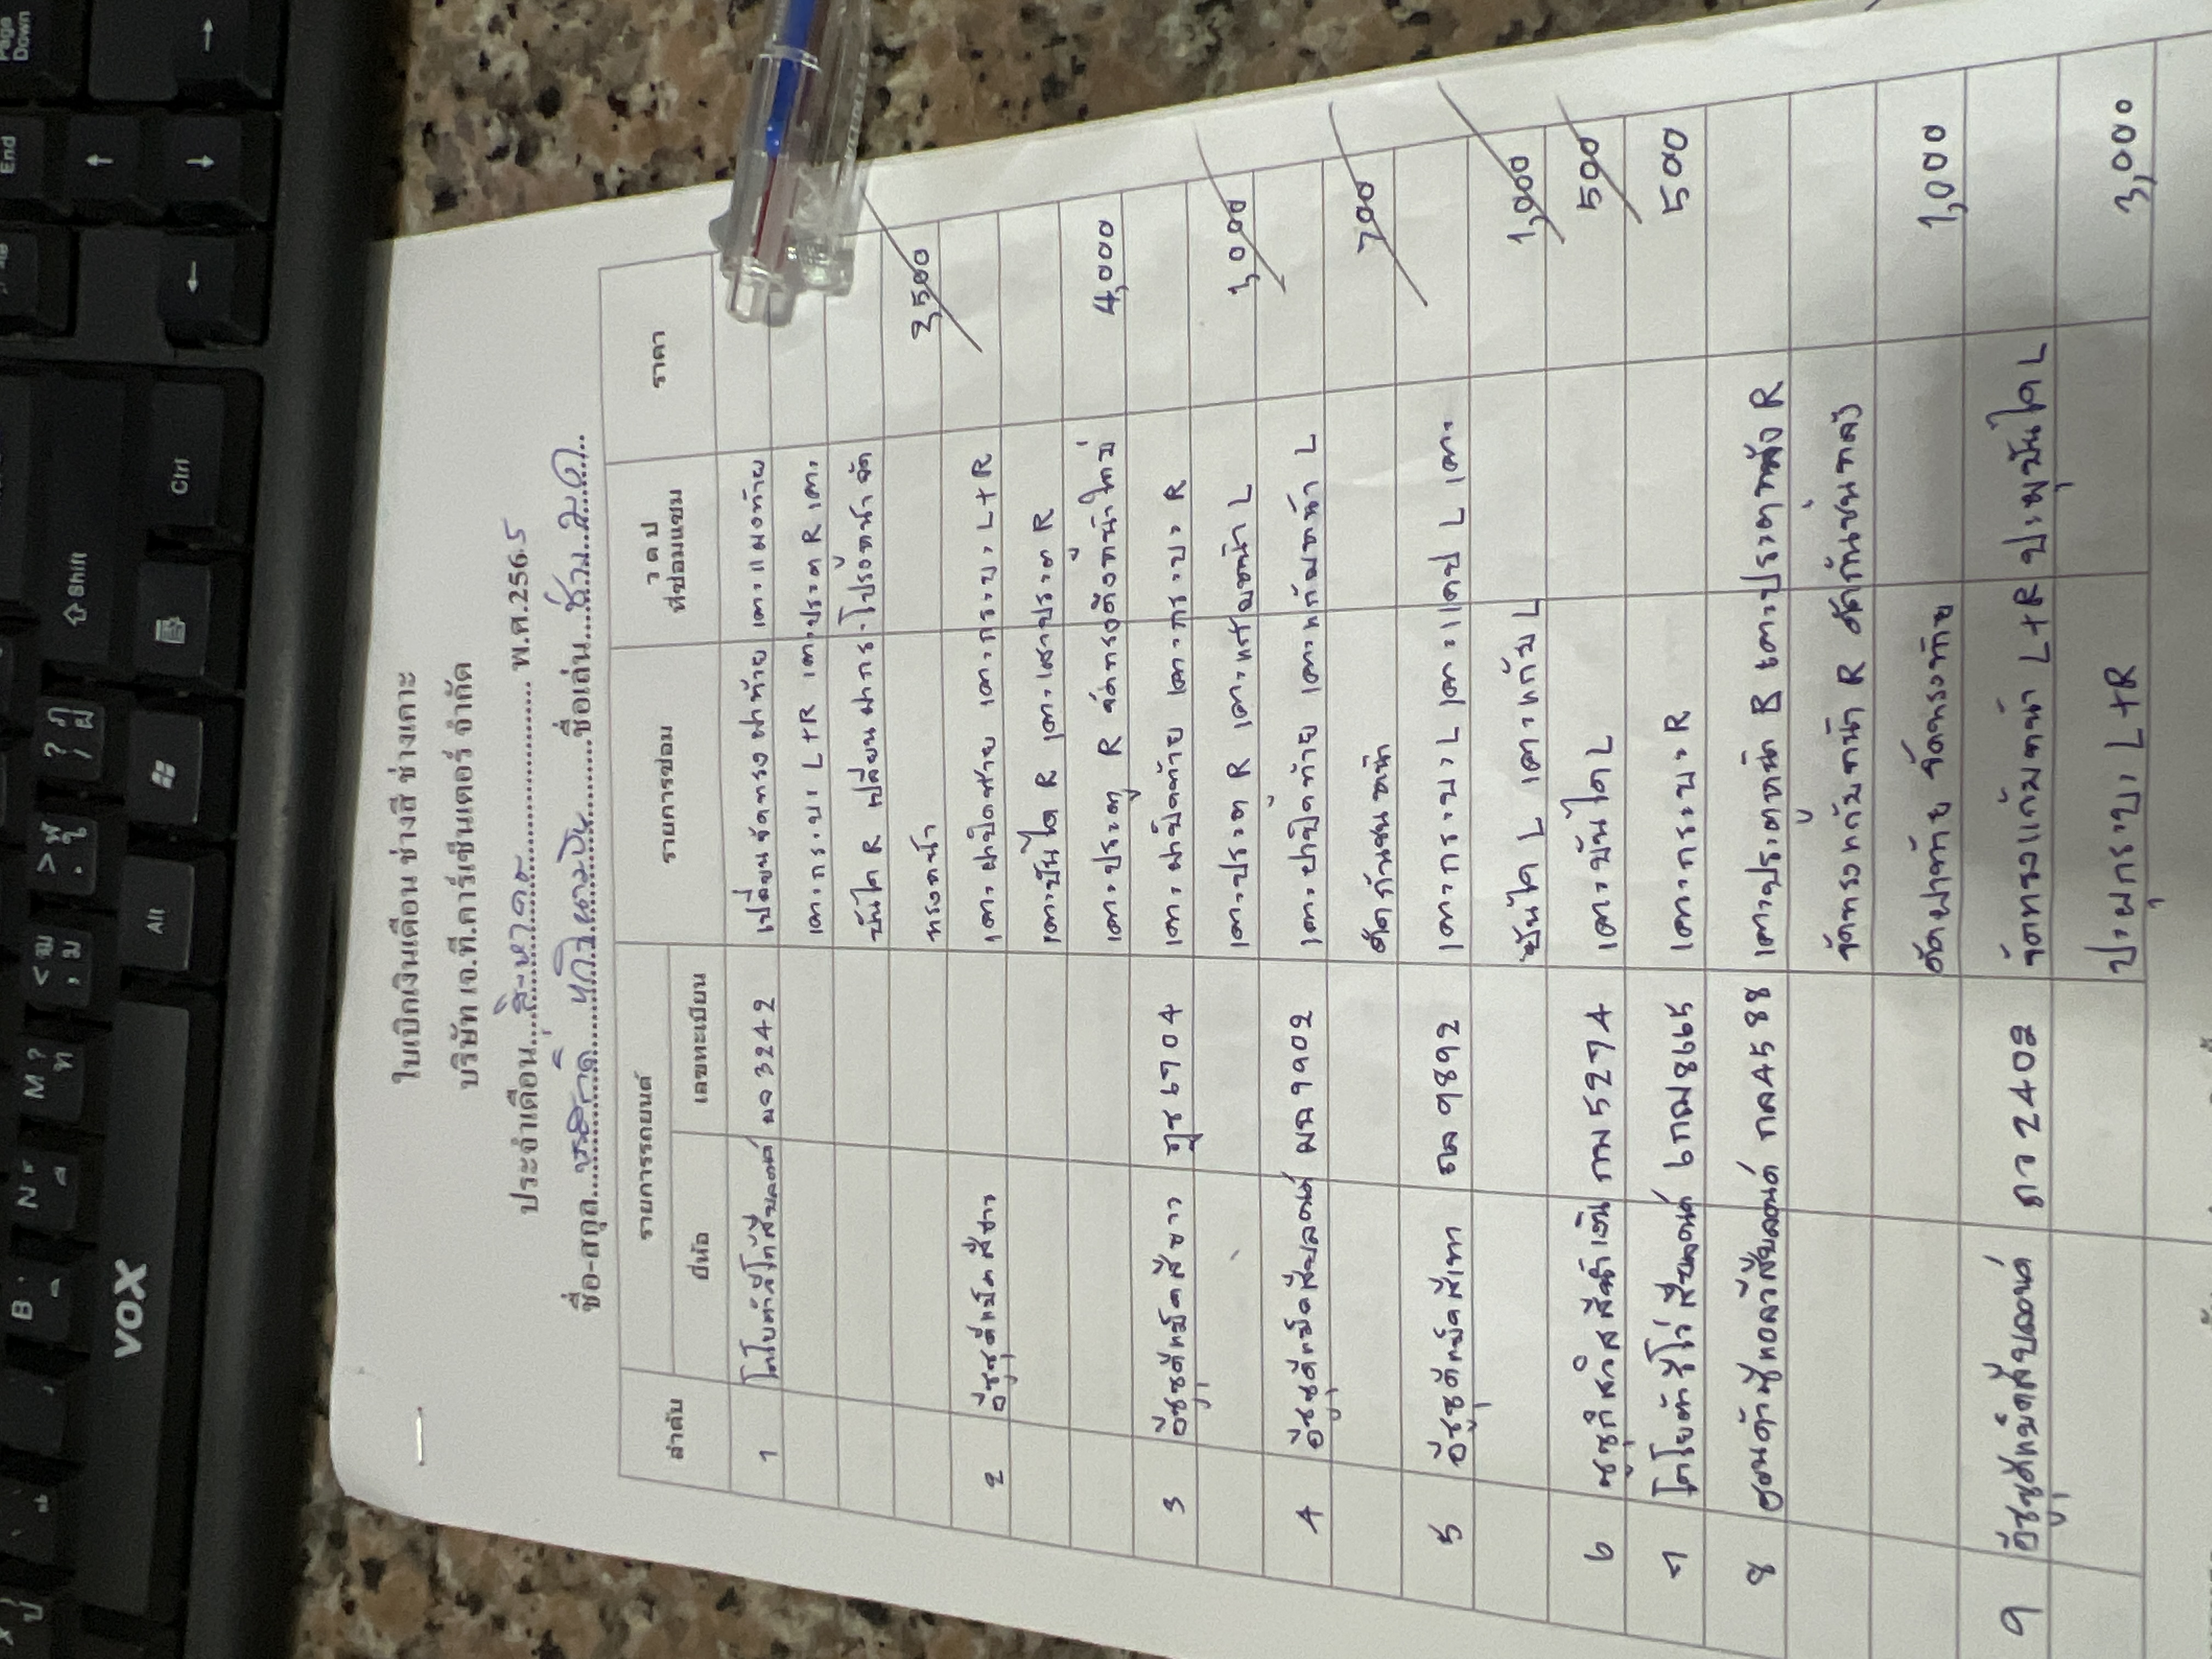 ใบเบิกเงินเดือน ช่างสี ช่างเคาะ
บริษัท เจ.ที.คาร์เซ็นเตอร์ จำกัด
ประจำเดือน สิงหาคม พ.ศ.2565
ชื่อ-สกุล ชื่อเล่น
ลำดับ รายการรถยนต์ รายการซ่อม ว ด ป ที่ซ่อมแซม ราคา
ยี่ห้อ เลขทะเบียน
1 3242 เปลี่ยนจัดทรงฝาท้าย เคาะแผงท้าย
เคาะกระบะ L+R เคาะประตู R เคาะ
บันได R เปลี่ยนฝากระโปรงหน้า จัด
ทรงหน้า 3,500
2 อีซูซุดีแม็คสีขาว เคาะฝาปิดท้าย เคาะกระบะ L+R
เคาะบันได R เคาะเสาประตู R
เคาะประตู R จัดทรงคิ้วหน้าใหม่ 4,000
3 อีซูซุดีแม็คสีขาว 6704 เคาะฝาปิดท้าย เคาะกระบะ R
เคาะประตู R เคาะแก้มหน้า L 1,000
4 อีซูซุดีแม็คสีบลอนด์ 9902 เคาะฝาปิดท้าย เคาะแก้มหน้า L
ดัดกันชนหน้า 700
5 อีซูซุดีแม็คสีเทา 9892 เคาะกระบะ L เคาะแคป L เคาะ
บันได L เคาะแก้ม L 1,000
6 ซูซูกิสวิสสีน้ำเงิน กม 5274 เคาะบันได L 500
7 8665 เคาะกระบะ R 500
8 กล 4588 เคาะประตูหน้า R เคาะประตูหลัง R
จัดทรงแก้มหน้า R ดัดกันชนหลัง
ดัดฝาท้าย จัดทรงท้าย 1,000
9 อีซูซุดีแม็คสีบลอนด์ 2402 จัดทรงแก้มหน้า L+R ปะผุบันได L
ปะผุกระบะ L+R 3,000
VOX
Alt
Ctrl
Shift
End
Page Down
B
N
M